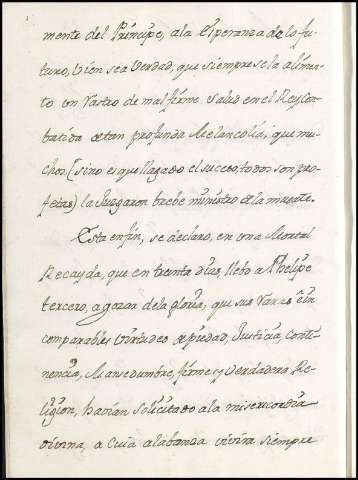 mente del Principe, a la Esperanza de lo fu-
turo, bien sea Verdad, que siempre se la alimen-
to un Rastro de mal firme Salud en el Rey Com-
batida de tan profunda Melancolia, que mu-
chos [sino es que llagado el suceso, todos son pro-
fetas] la Juzgaron brebe ministro de la muerte.
Esta enfin, se declaro, en una Mortal
Recayda, que en treinta dias, llebo a Phelipe
tercero, a gozar de la gloria, que sus Raras è in-
comparables Virtudes de piedad, Justicia, Conti-
nencia, Mansedumbre, firme y Verdadera Re-
ligion, havian solicitado a la misericordia
divina, a cuia alabanza vivira siempre